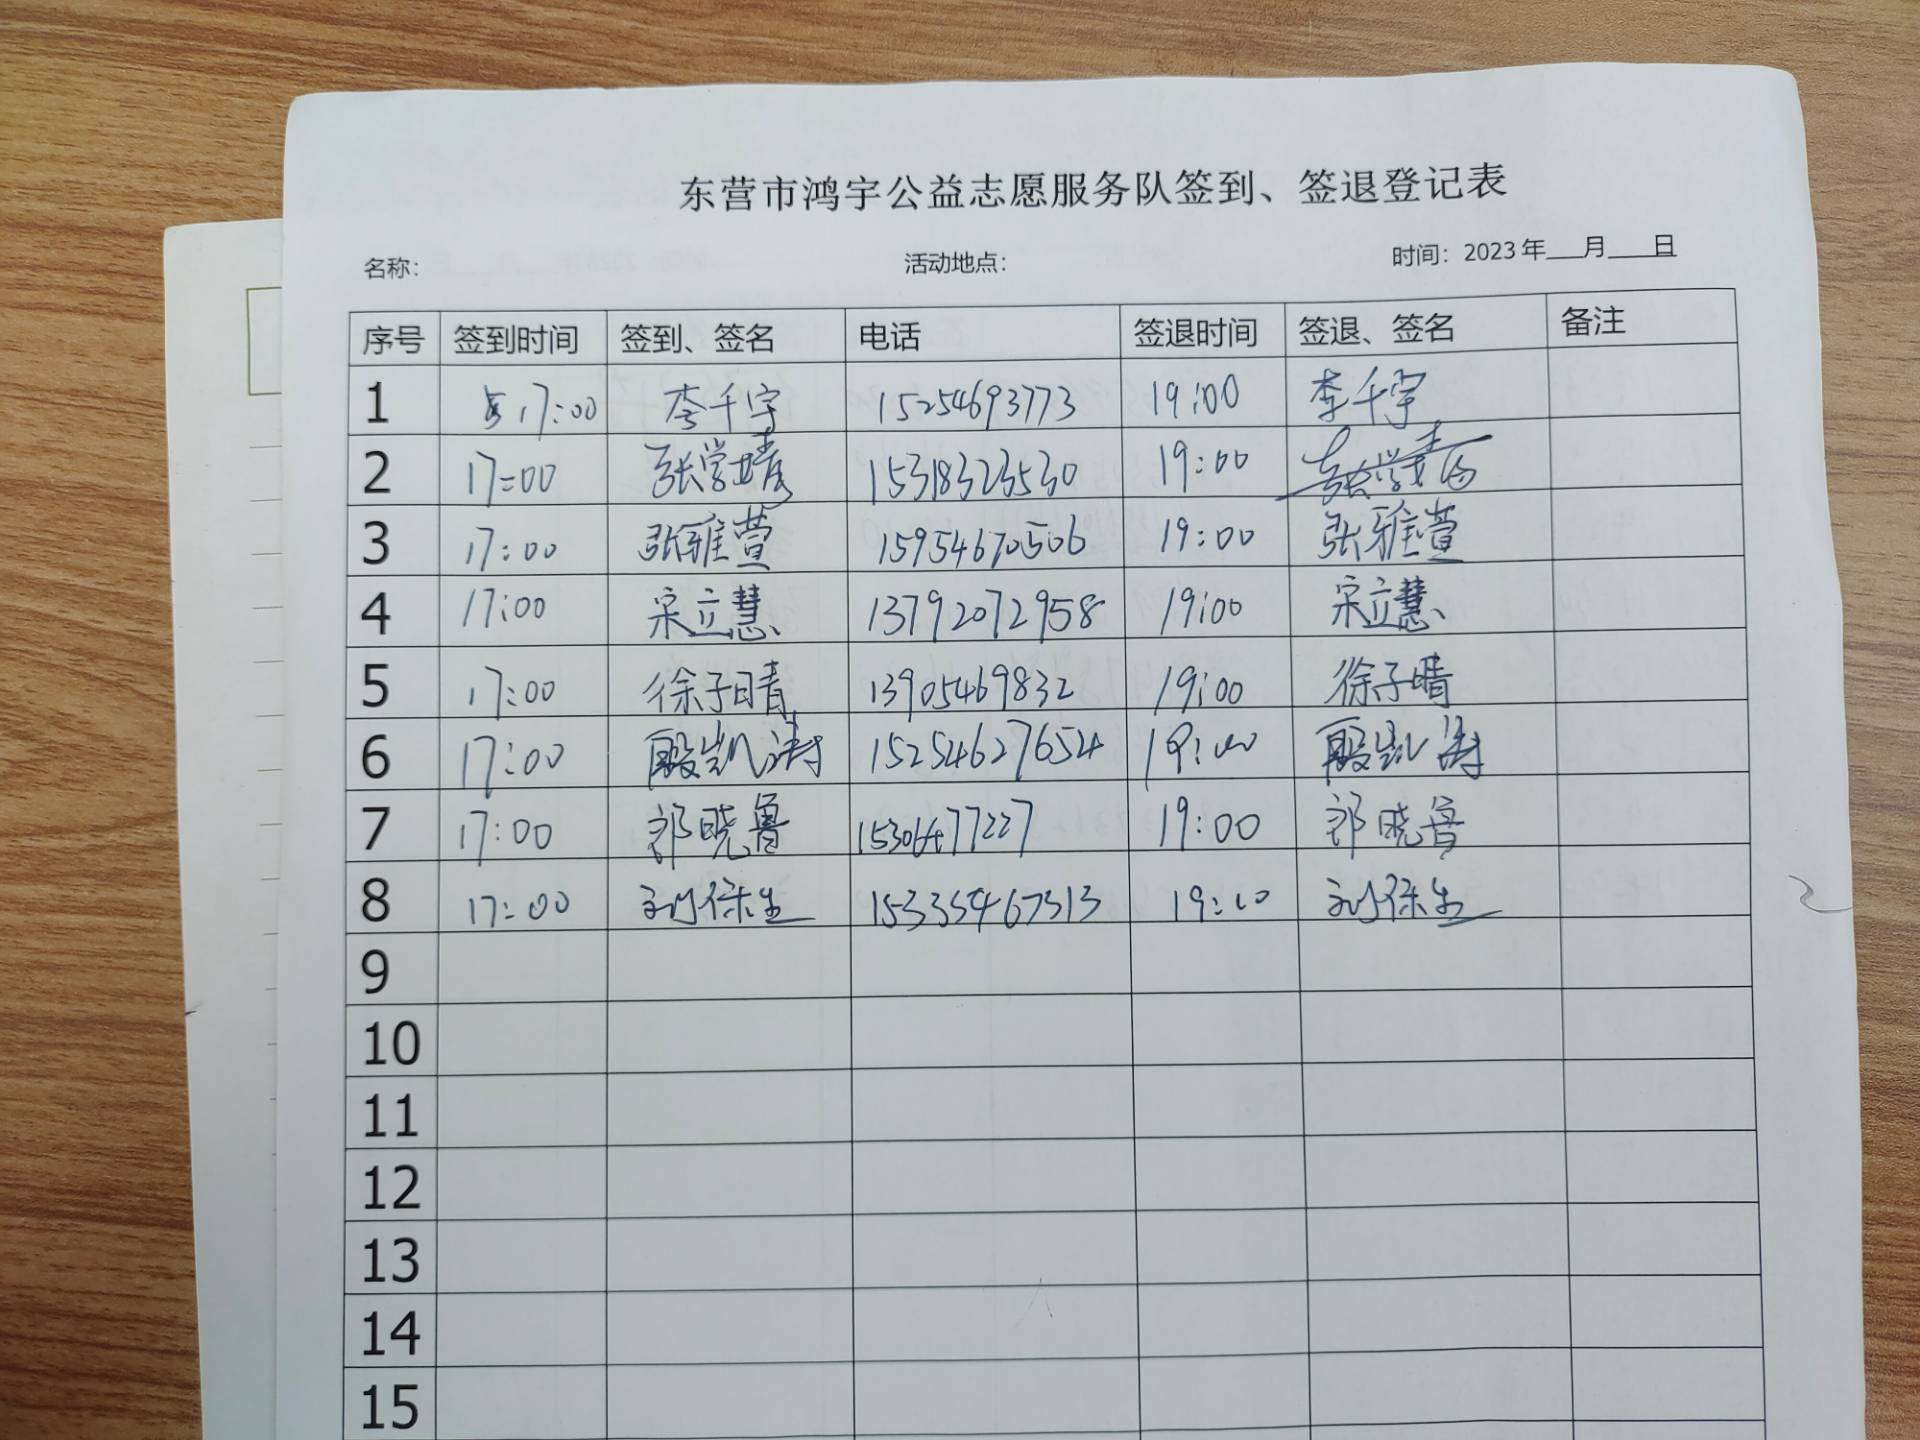 东营市鸿宇公益志愿服务队签到、签退登记表
名称： 活动地点： 时间：2023年___月___日
序号 签到时间 签到、签名 电话 签退时间 签退、签名 备注
1 17:00 李千宇 15254693773 19:00 李千宇
2 17:00 张学婧 15318323530 19:00
3 17:00 张雅萱 15954670506 19:00 张雅萱
4 17:00 宋立慧 13792072958 19:00 宋立慧
5 17:00 徐子晴 13905469832 19:00 徐子晴
6 17:00 殷凯涛 15254627654 19:00 殷凯涛
7 17:00 郭晓鲁 19:00 郭晓鲁
8 17:00 刘保生 19:00 刘保生
9
10
11
12
13
14
15